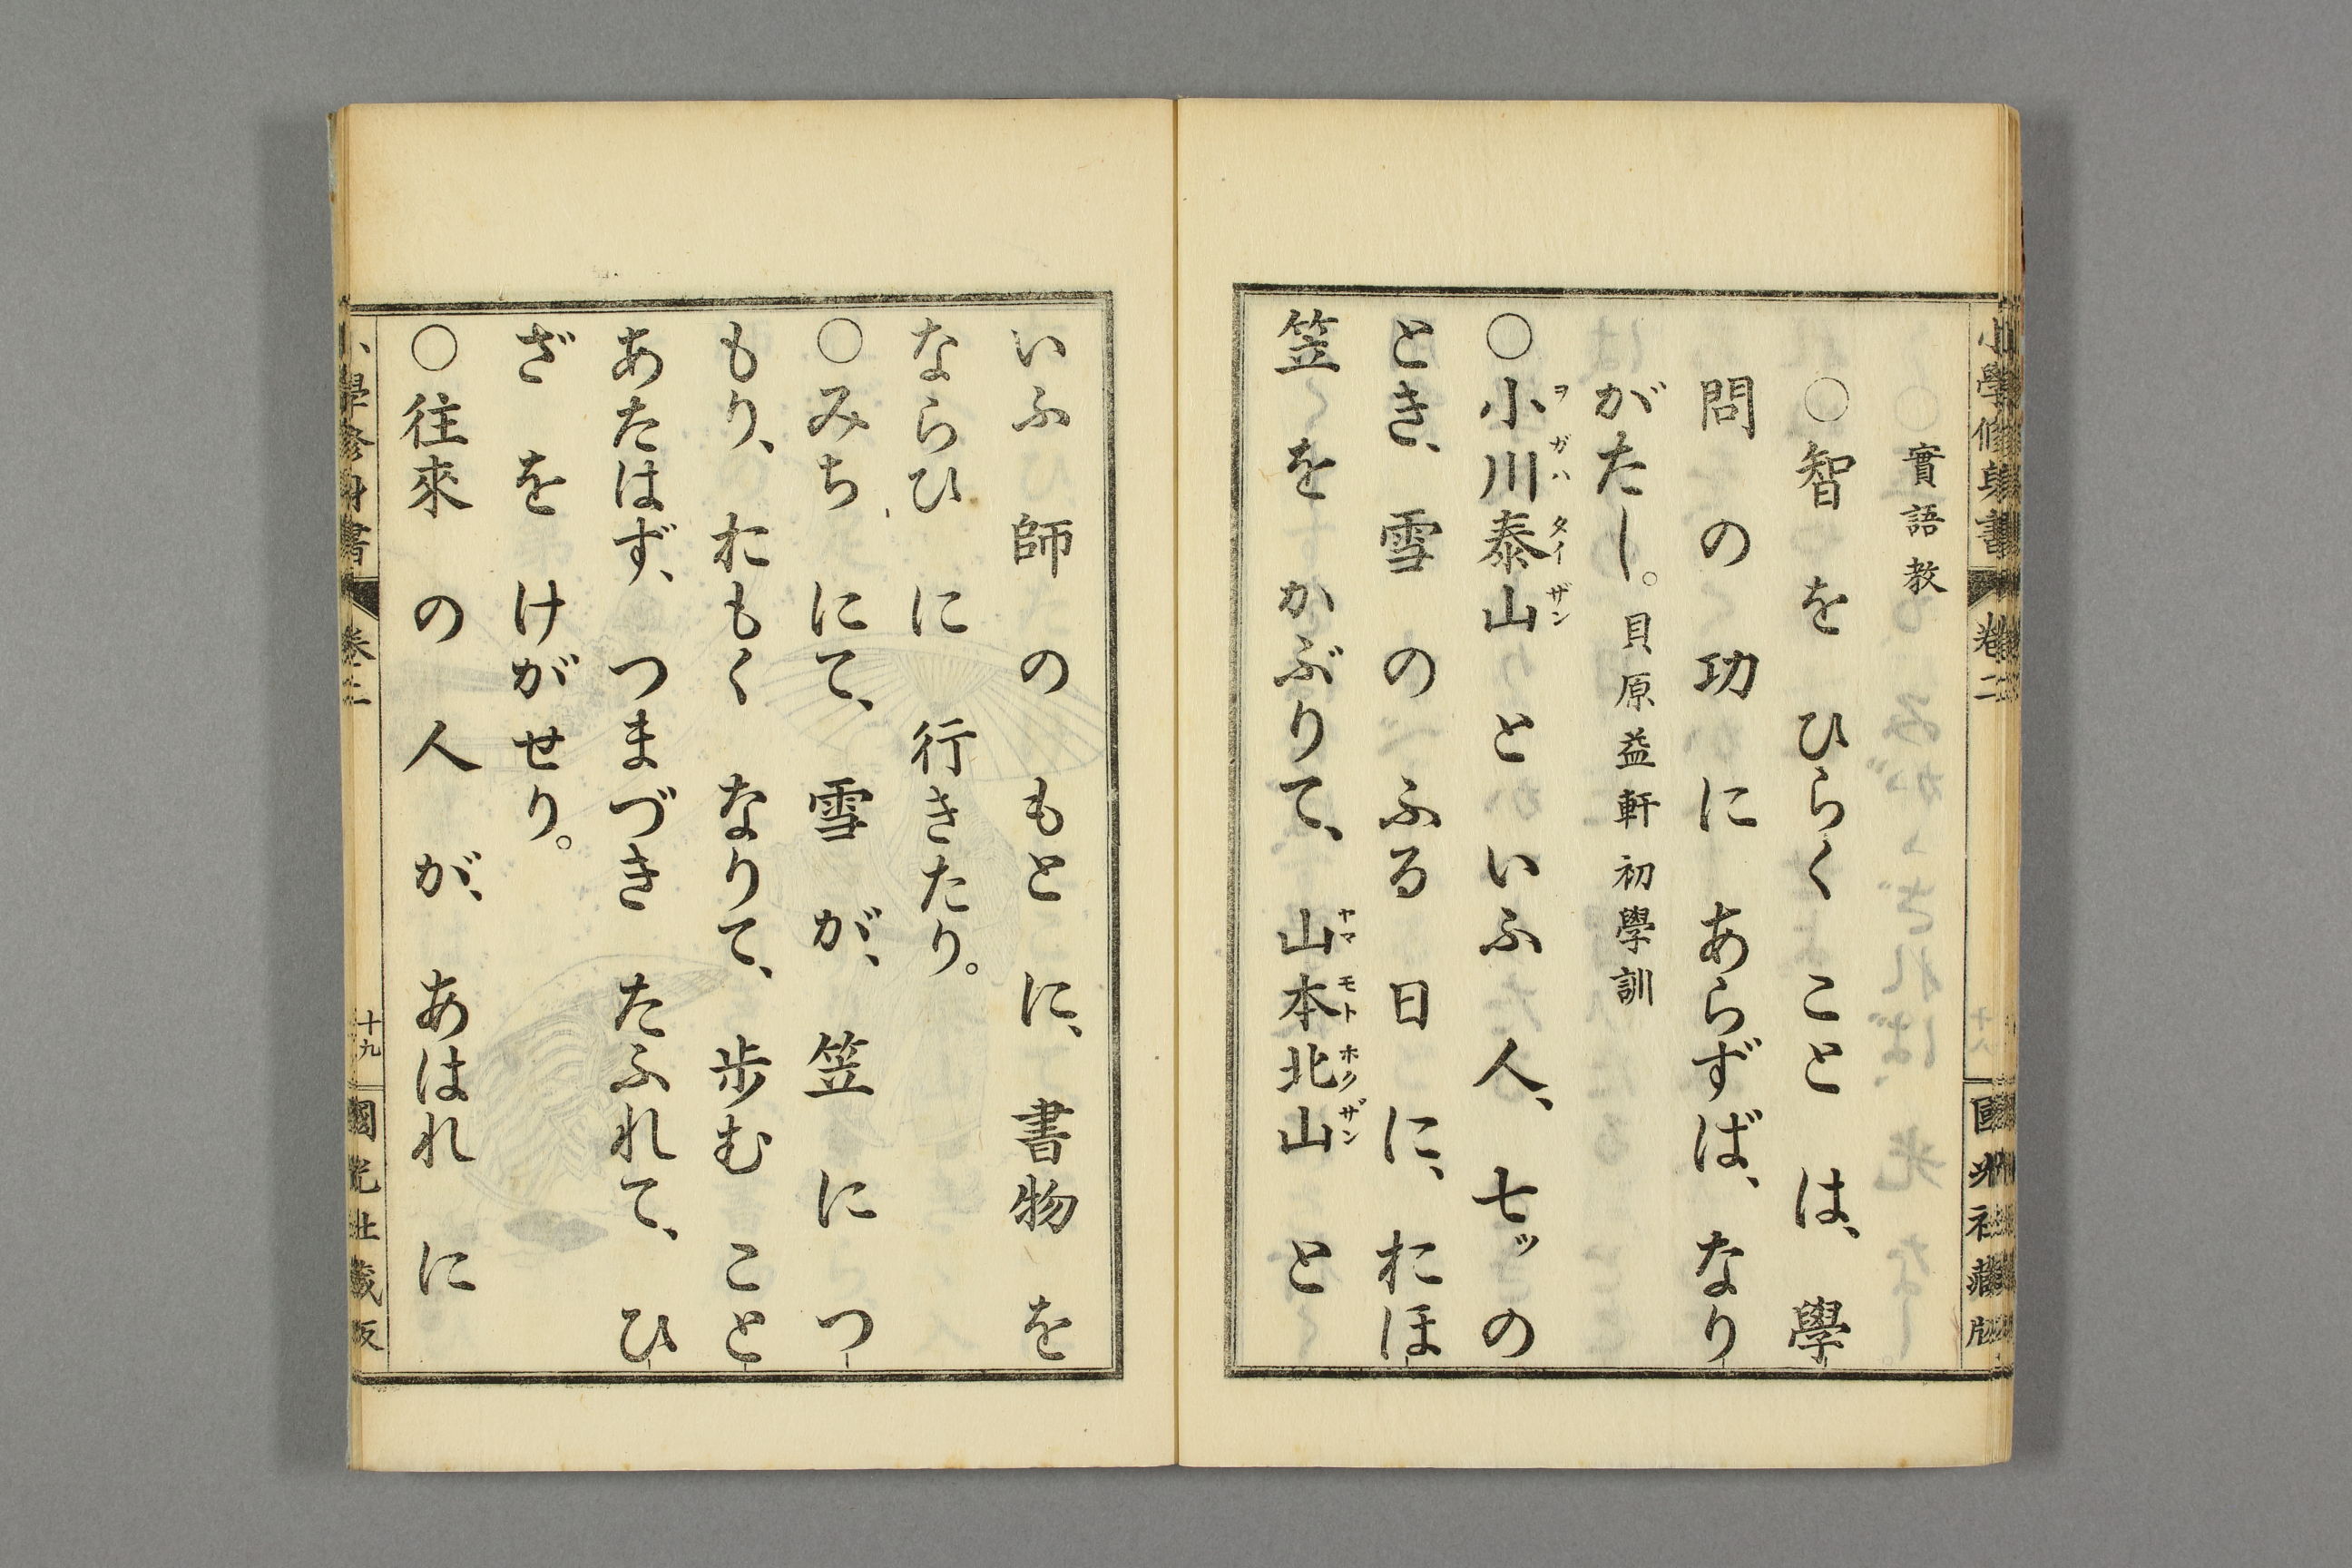 小學修身書 卷二 國光社藏版
實語教
○智を ひらく こと は、 學
問 の 功 に あらずば、 なり
がたし。 貝原益軒 初學訓
○小川泰山 と いふ 人、 七ッ の
ヲガハ タイザン
とき、 雪 の ふる 日 に、 おほ
笠 を かぶりて、 山本北山 と
ヤマモト ホクザン
いふ 師 の もと に、 書物 を
ならひ に 行きたり。
○みち にて、 雪 が、 笠 に つ
もり、 おもく なりて、 歩む こと
あたはず、 つまづき たふれて、 ひ
ざ を けがせり。
○往來 の 人 が、 あはれ に
小學修身書 卷二 十九 國光社藏版